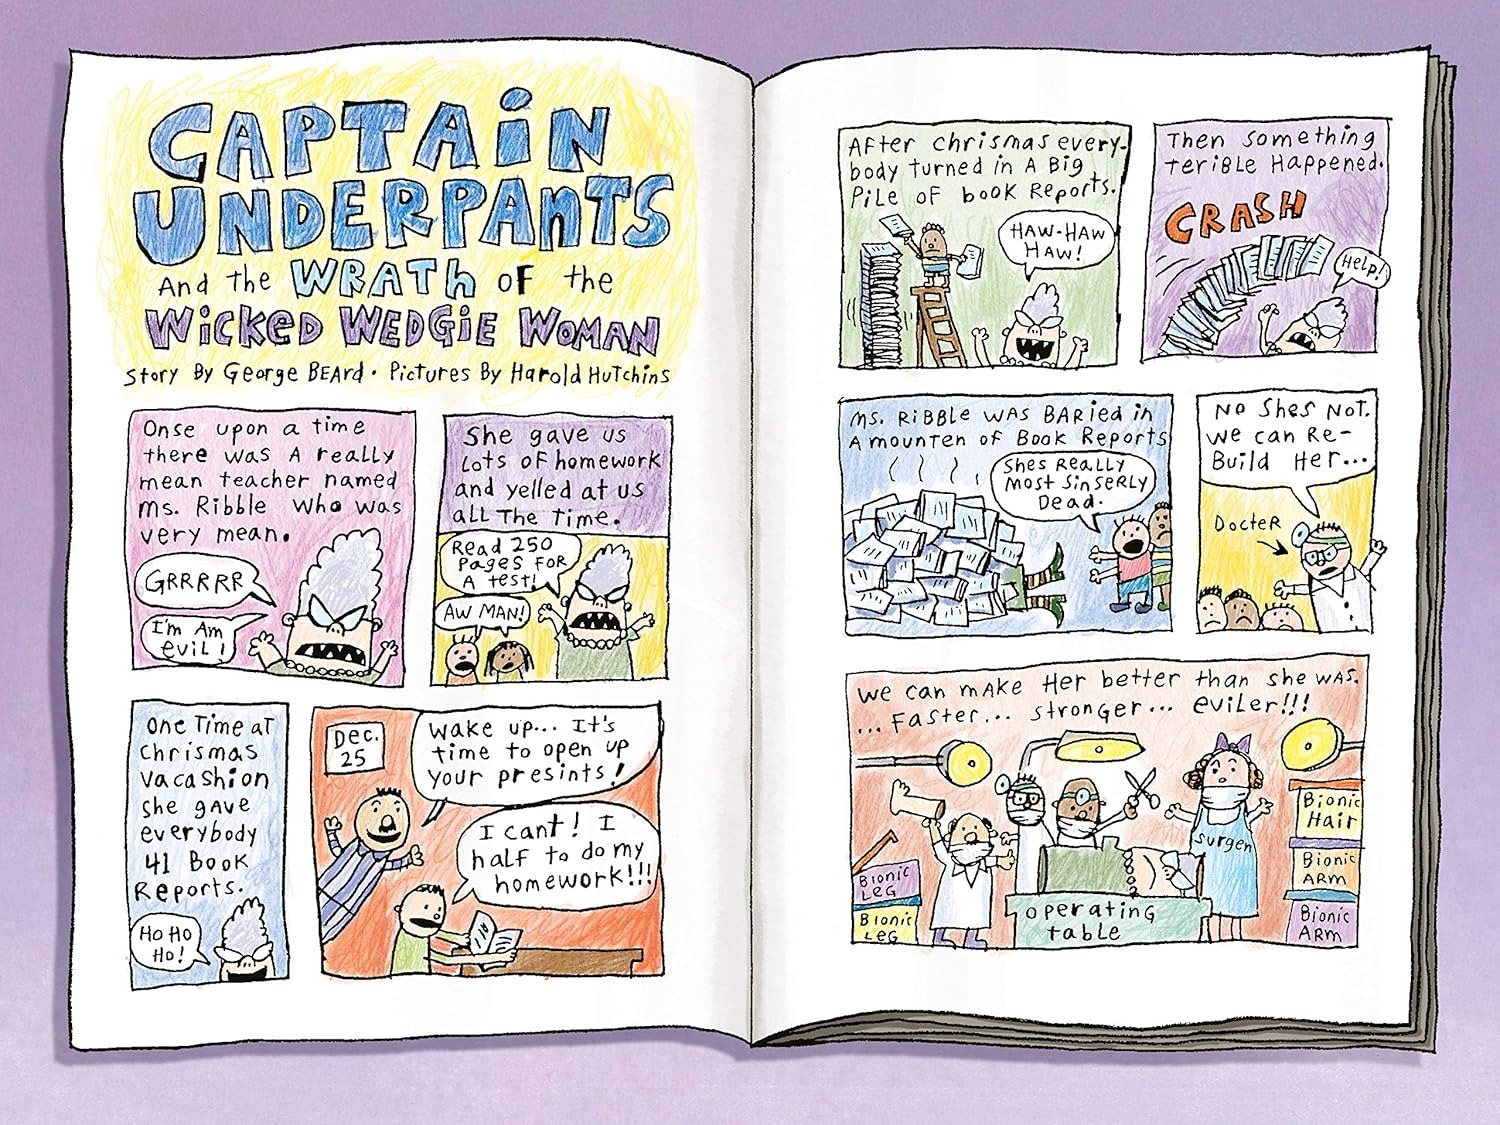 CAPTAiN
UNDERPAnTS
And the WRATh OF the
WicKeD WEDGiE WOMAN
Story By George BEArd • Pictures By Harold HUTchins
Onse upon a time
there was A really
mean teacher named
Ms. Ribble Who was
very mean.
GRRRRR
I'm Am
evil!
She gave us
Lots of homework
and yelled at us
all The Time.
Read 250
Pages For
A test!
AW MAN!
One Time at
Chrismas
vacashion
she gave
everybody
41 Book
Reports.
Ho Ho
Ho!
Dec.
25
Wake up... It's
time to open up
your presints!
I cant! I
half to do my
homework!!!
After chrismas every-
body turned in A Big
Pile of book Reports.
HAW-HAW
HAW!
Then Something
TeriBLE Happened.
CRASH
Help!
Ms. RiBBLe was BARied in
A mounten of Book Reports
Shes Really
Most Sinserly
Dead.
No Shes Not.
We can Re-
Build Her...
DocteR
We can mAke Her better than she was.
... Faster... stronger... eviler!!!
Bionic
Leg
Bionic
Leg
operating
table
Surgen
Bionic
Hair
Bionic
ARM
Bionic
ARM